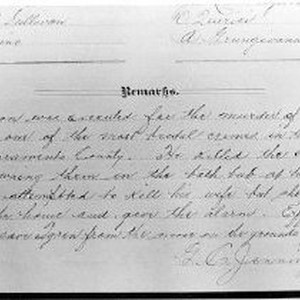 Sullivan
R Queries
A Grungivann
Remarks.
on was executed for the murder of
one of the most brutal crimes in
cramento County. He killed the
wing them in the bath tub of the
attempted to kill his wife but she
home and gave the alarm.
from the on the grounds